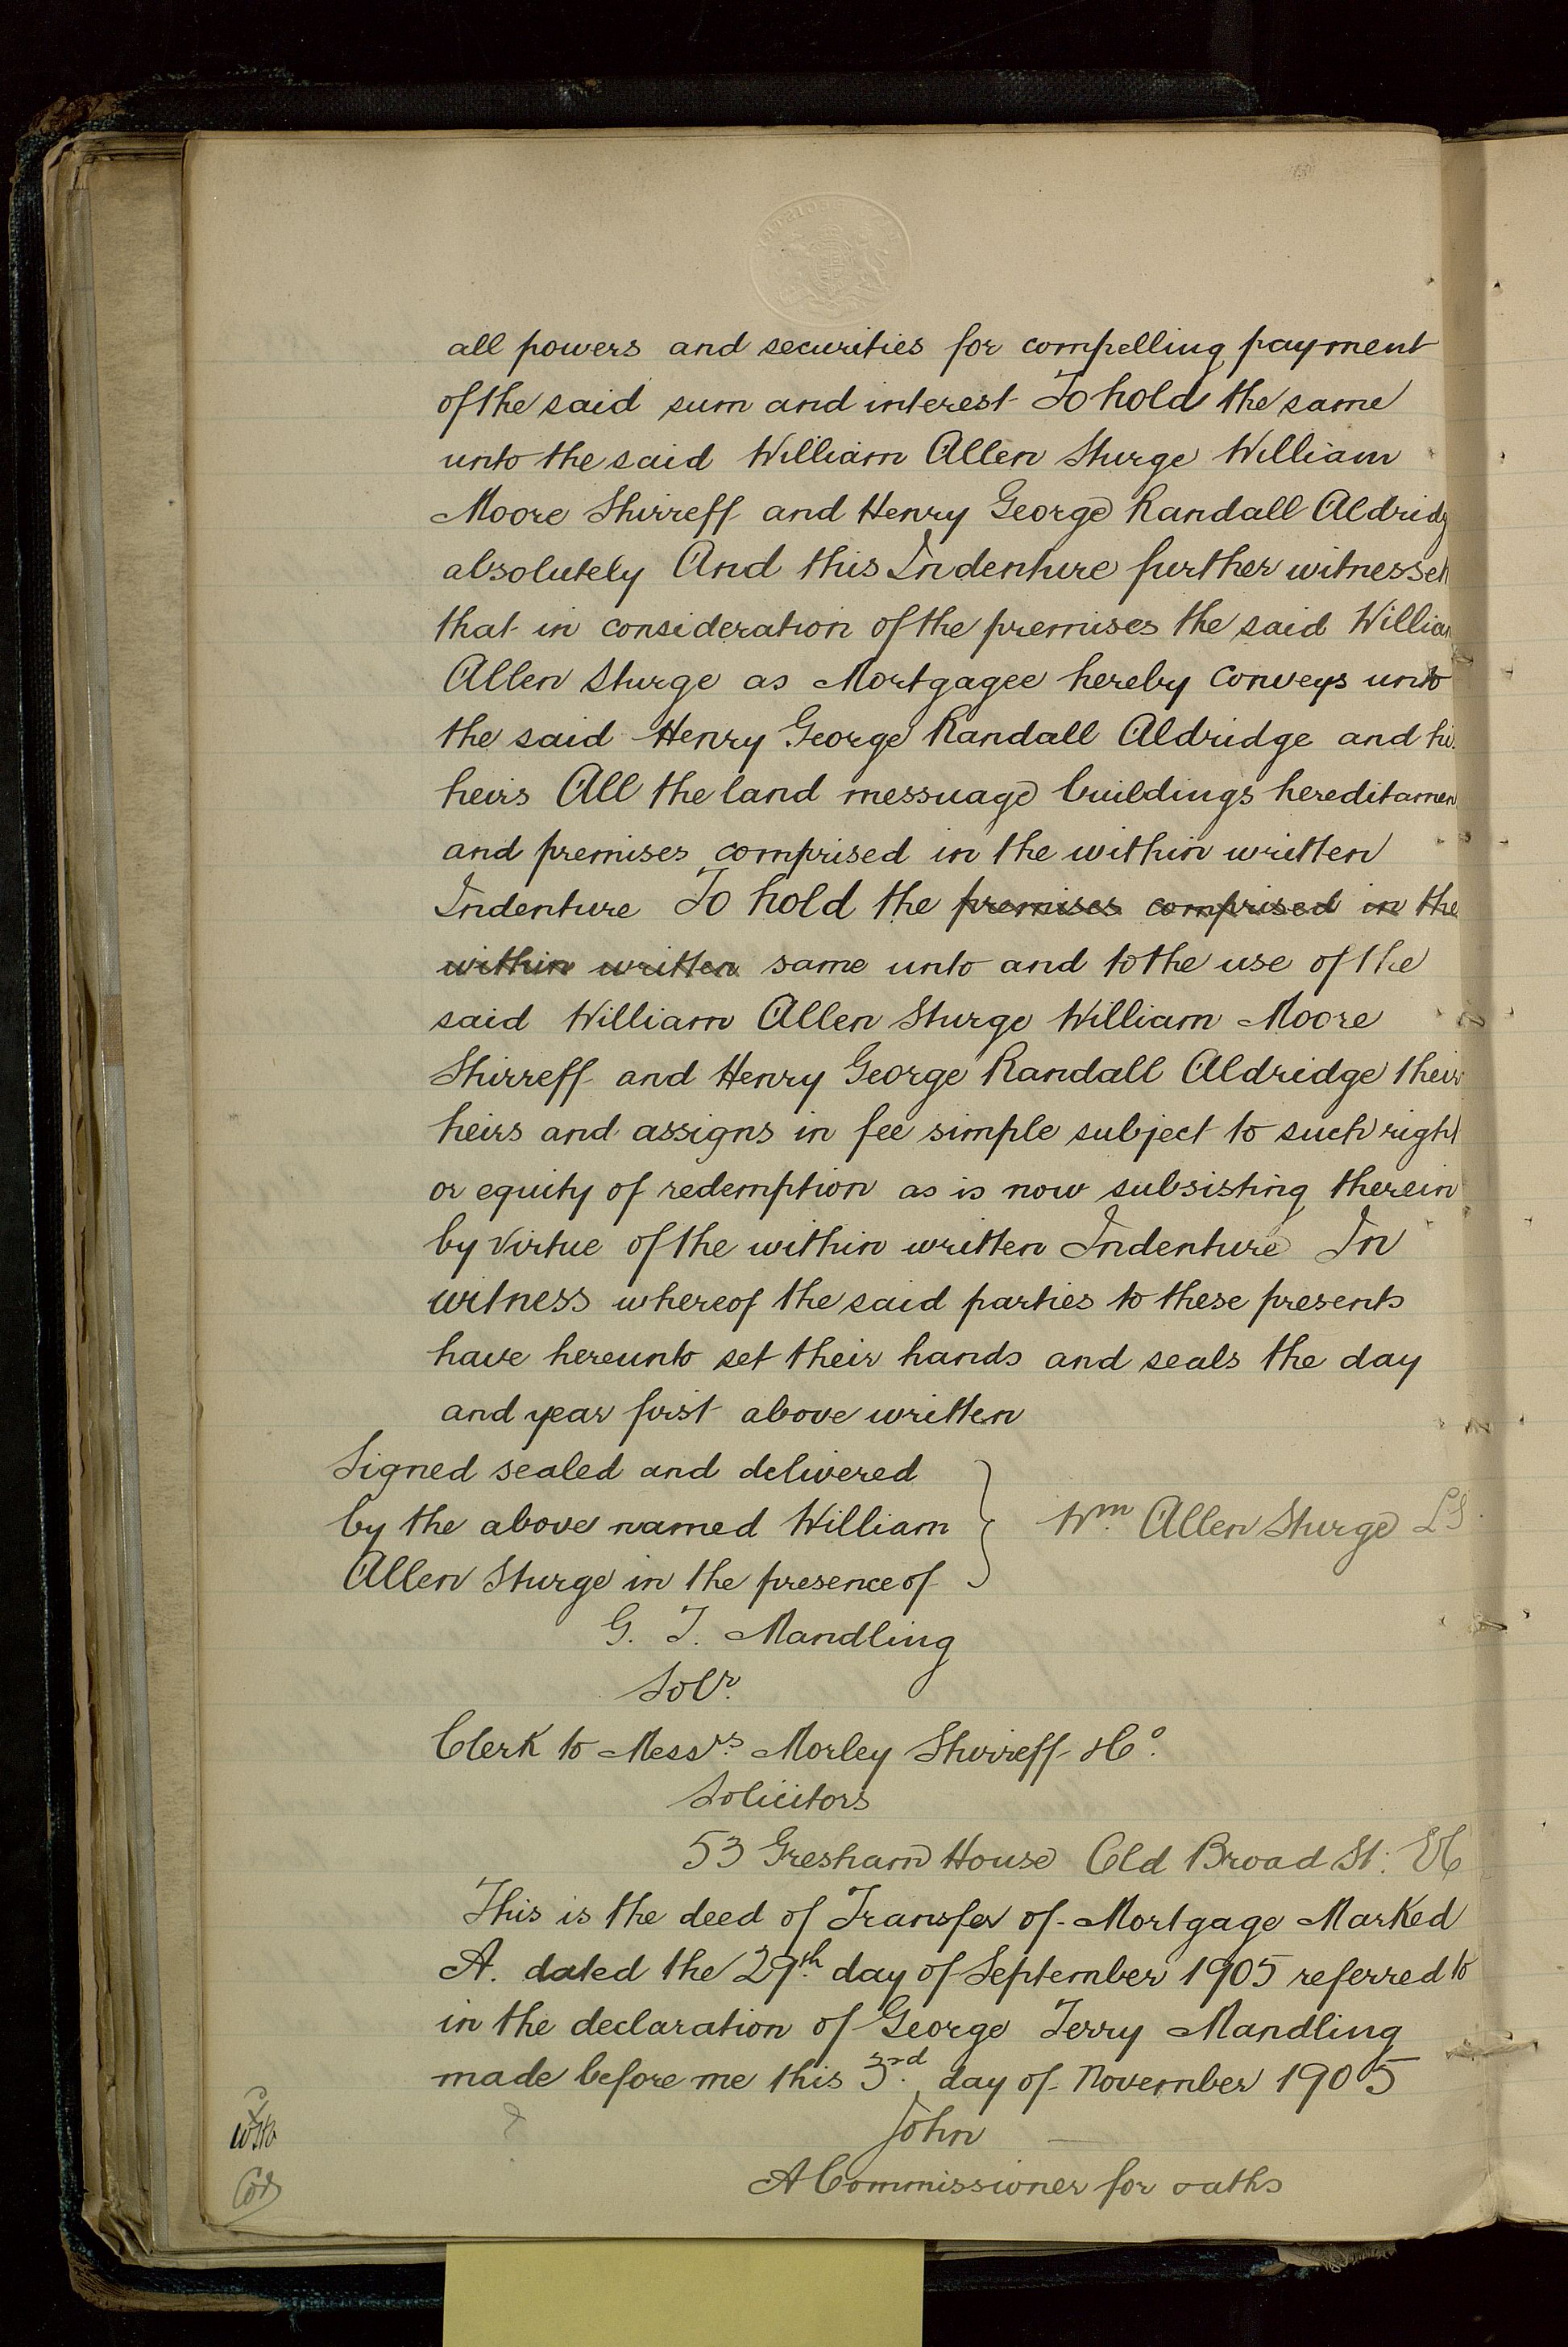 all powers and securities for compelling payment
of the said sum and interest To hold the same
unto the said William Allen Sturge William
Moore Shirreff and Henry George Randall Aldridg
absolutely And this Indenture further witnesset
that in consideration of the premises the said William
Allen Sturge as Mortgagee hereby conveys unto
the said Henry George Randall Aldridge and his
heirs All the land messuage buildings hereditamen
and premises comprised in the within written
Indenture To hold the premises comprised in the
within written same unto and to the use of the
said William Allen Sturge William Moore
Shirreff and Henry George Randall Aldridge their
heirs and assigns in fee simple subject to such right
or equity of redemption as is now subsisting therein
by virtue of the within written Indenture In
witness whereof the said parties to these presents
have hereunto set their hands and seals the day
and year first above written
Signed sealed and delivered
by the above named William
Allen Sturge in the presence of
Wm. Allen Sturge LS
G. T. Mandling
Solr.
Clerk to Messrs. Morley Shirreff & Co.
Solicitors
53 Gresham House Old Broad St: EC
This is the deed of Transfer of Mortgage Marked
A. dated the 29th. day of September 1905 referred to
in the declaration of George Terry Mandling
made before me this 3rd. day of November 1905
John
A Commissioner for oaths